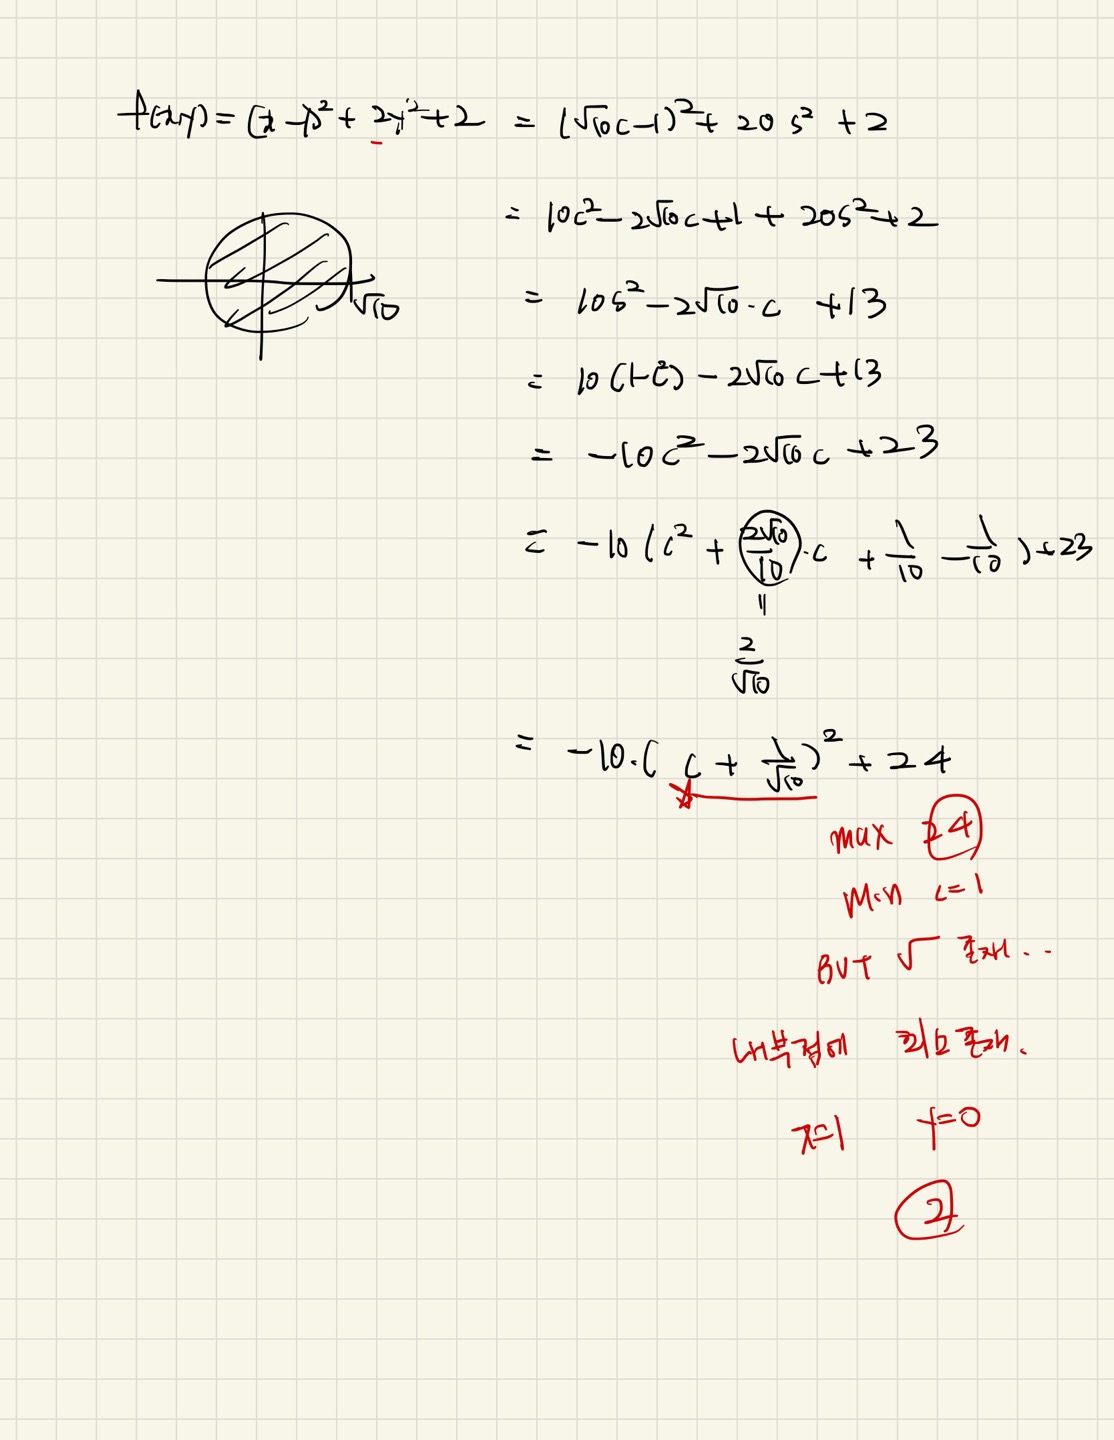 f(x,y) = (x-1)² + 2y² + 2 = (√10c-1)² + 20s² + 2
= 10c² - 2√10c + 1 + 20s² + 2
√10
= 10s² - 2√10·c + 13
= 10(1-c²) - 2√10c + 13
= -10c² - 2√10c + 23
= -10(c² + 2√10/10·c + 1/10 - 1/10) + 23
=
2/√10
= -10·(c + 1/√10)² + 24
max 24
Min c=1
But √ 존재..
내부점에 최소 존재.
x=1 y=0
2